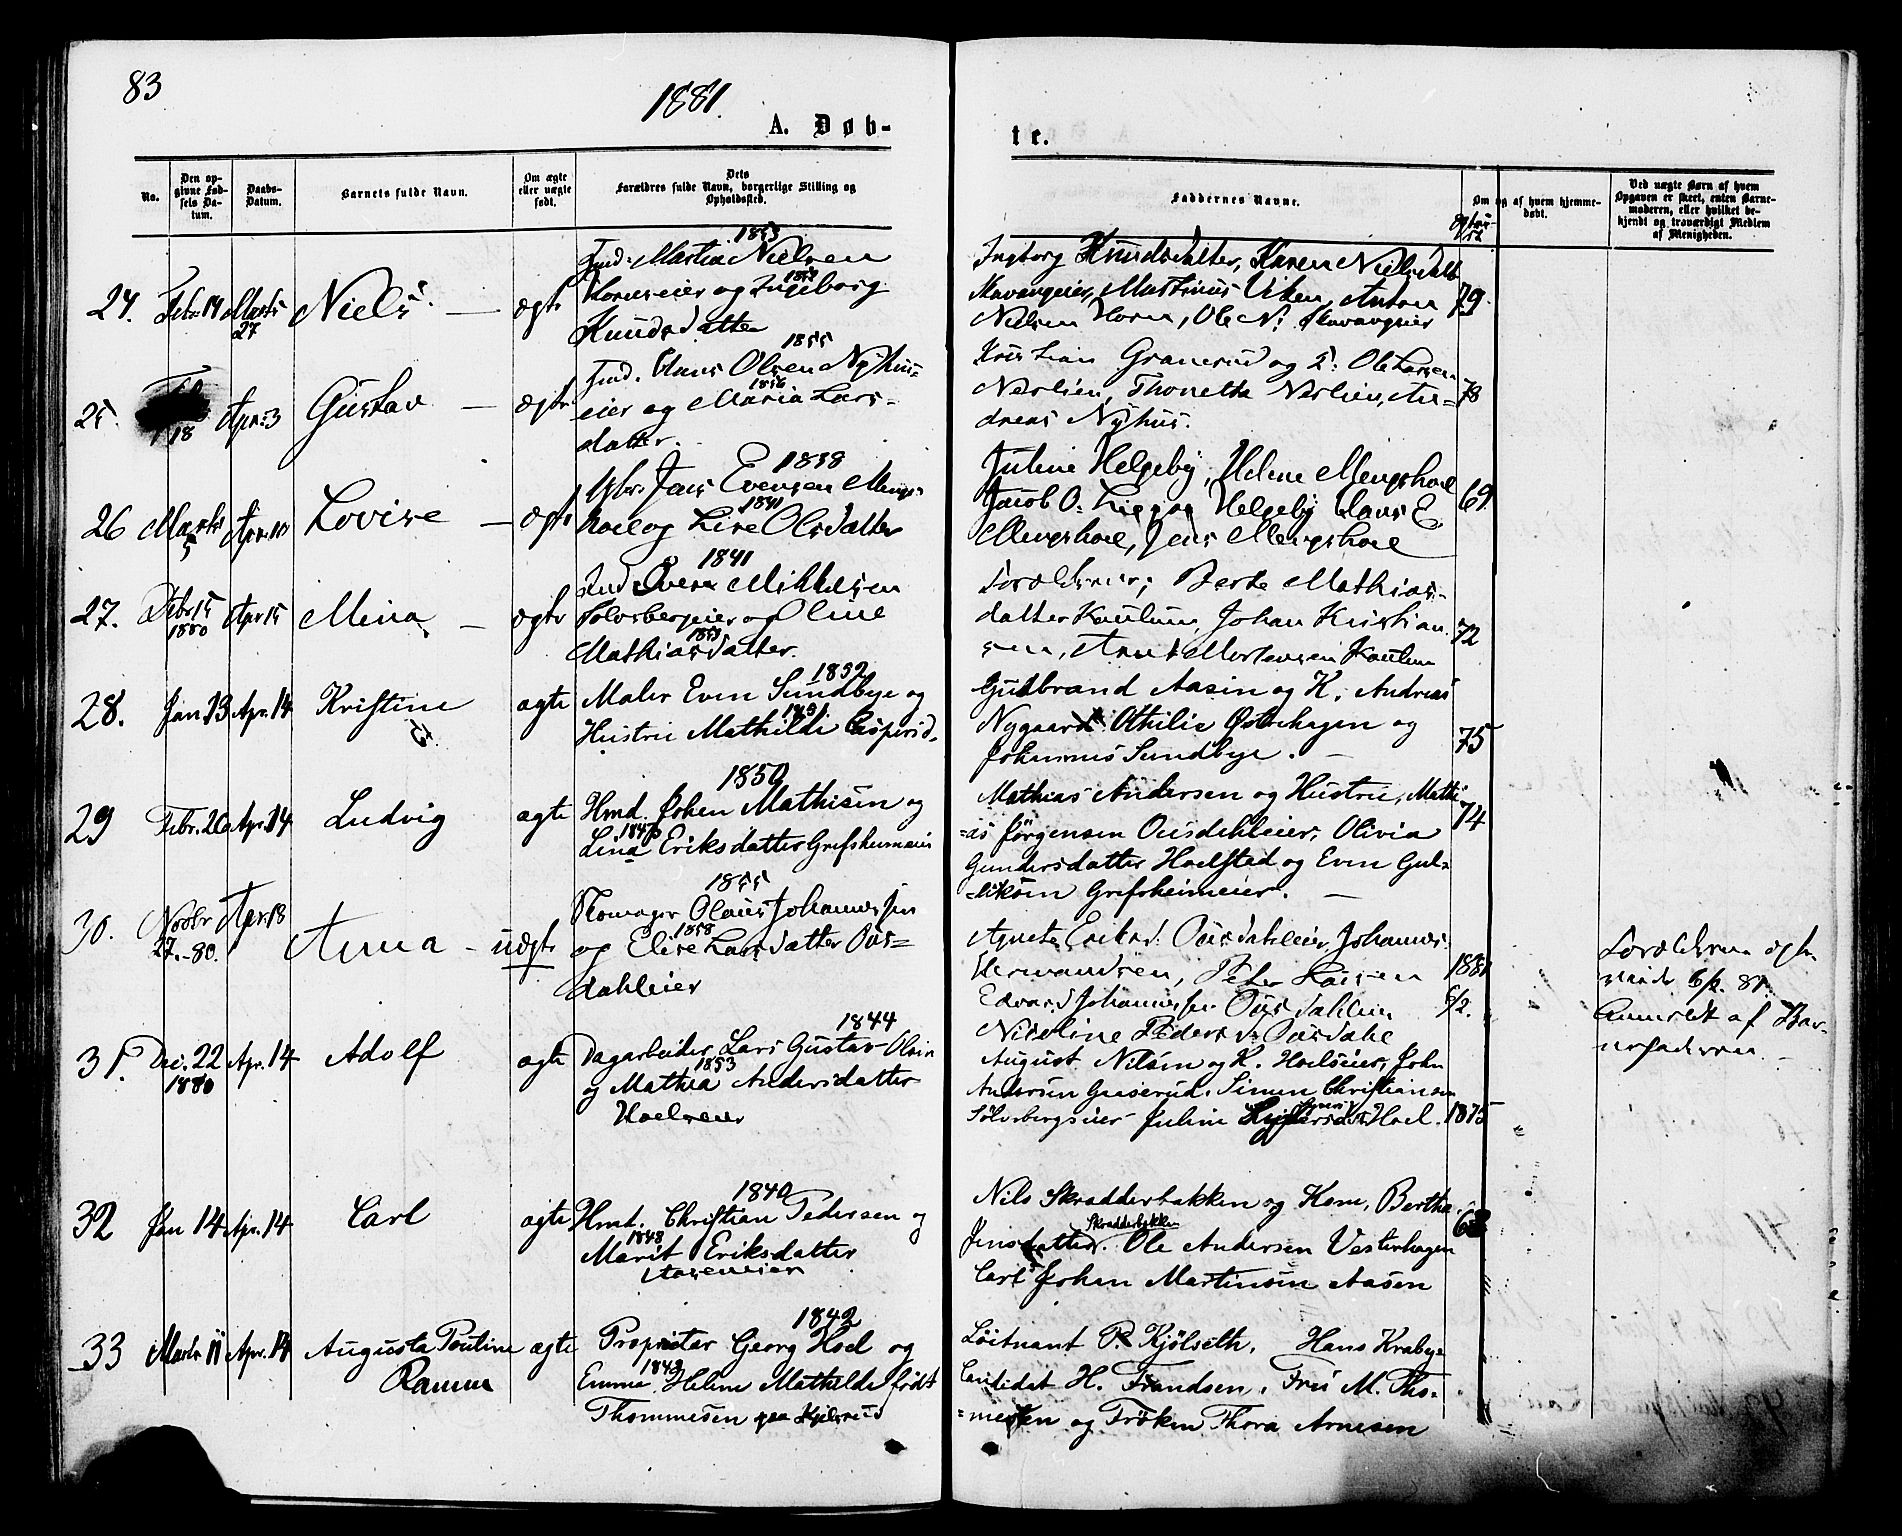 83
1881.
A. Døb-
te.
No.
Den op-
givne Fød-
sels Da-
tum.
Daabs-
Datum.
Barnets fulde Navn.
Om ægte
eller uægte
født.
Dets
Forældres fulde Navn, borgerlige Stilling og
Opholdssted.
Faddernes Navne.
Om og af hvem hjemme-
døbt.
Ved uægte Børn af hvem
Opgaven er skeet, enten Barne-
moderen, eller hvilket be-
kjendt og troværdigt Medlem
af Menigheden.
24. Febr 14 Marts
27
Niels — ægte
1853
Ind. Martin Nielsen
Horneneier og Ingeborg
Knudsdatter
Ingborg Knudsdatter, Karen Nielsdatt
Skavangeier, Martinus Viken, Anton
Nielsen Horn, Ole N. Skavangeier
79.
25. 18 Apr. 3 Gustav — ægte
1855
Ind. Hans Olsen Nyhus-
1856
eier og Maria Lars-
datter.
Kristian Granerud og Ole Larsen
Nerlien, Thonetta Nerlien, An-
dreas Nyhus.
78
26 Marts
5 Apr. 10 Lovise — ægte
1838
Gbr. Jens Evensen Mengs-
1841
hoel og Lise Olsdatter
Juline Helgeby, Helene Mengshoel
Jacob O. Helgeby Hans E.
Mengshoel, Jens Mengshoel
69.
27. Febr 15
1880 Apr 15 Mina — ægte
1841
Ind. Even Mikkelsen
Solvbergeier og Oline
Mathiasdatter.
Forældrene, Berte Mathias-
datter Kaulum, Johan Kristian-
sen, Mortensen Kaulum
72
28. Jan. 23 Apr. 14 Kristine ægte
1852
Maler Even Sundbye og
Hustru Mathilde Caspersd.
Gulbrand Aasen og K. Andreas
Nygaard Othilie Østehagen og
Johannes Sundbye. —
75
29 Febr. 26 Apr. 14 Ludvig ægte
1850
Hmd. Johan Mathisen og
Lina Eriksdatter Grefsheimeier
Mathias Andersen og Hustru, Mathi
=as Jørgensen Ousdahleier, Olivia
Gundersdatter Hoelstad og Even Gul-
=liksen Grefsheimeier. —
74
30. Novbr
27.-80. Apr. 18 Anna — uægte
1855
Skomager Olaus Johannessen
1858
og Elise Larsdatter Ous=
dahleier
Agnete Eriksd. Ousdahleier, Johannes
Hermandsen, Peter Larsen
Edvard Johannessen Ousdahleier
Nicoline Pedersd. Ousdahl
1881
6/2.
Forældrene ægte
viede 6/2. 81.
Anmeldt af Bar-
nefaderen. —
31. Dec. 22
1880 Apr. 14 Adolf ægte
1844
Dagarbeider Lars Gustav Olsen
1853
og Mathea Andersdatter
Hoelseier
August Nilsen og K. Hoelseier, John
Andersen Granerud. Simen Christiansen
Sølvbergseier Juline Hoel.
1875
32 Jan 14 Apr. 14 Carl ægte
1840
Hmd. Christian Pedersen og
1848
Marit Eriksdatter
Aaseneier
Nils Skradderbakken og Kone, Berthe
Jensdatter Skradderbakken. Ole Andersen Vesterhagen
Carl Johan Martinsen Aasen
68
33 Marts 11 Apr. 14 Augusta Pouline
Ramm ægte
1842
Proprietær Georg Hoel og
1843
Emma Helene Mathilde født
Thommesen paa Kjelsrud
Løitnant P. Kjölseth. Hans Krabye
Candidat H. Frandsen, Fru M. Tho-
=mesen og Frøken Thora Arnesen